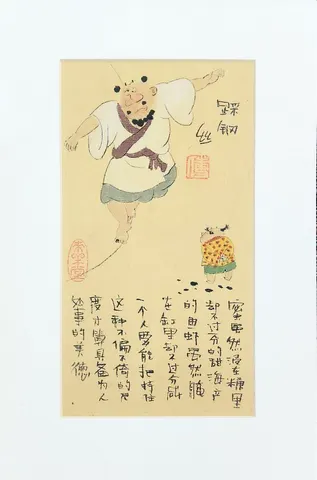 踩钢
丝
蜜果虽然浸在糖里
却不过分的甜海产
的鱼虾虽然腌
在缸里却不过分咸
一个人要能把持住
这种不偏不倚的尺
度才算具备为人
处事的美德